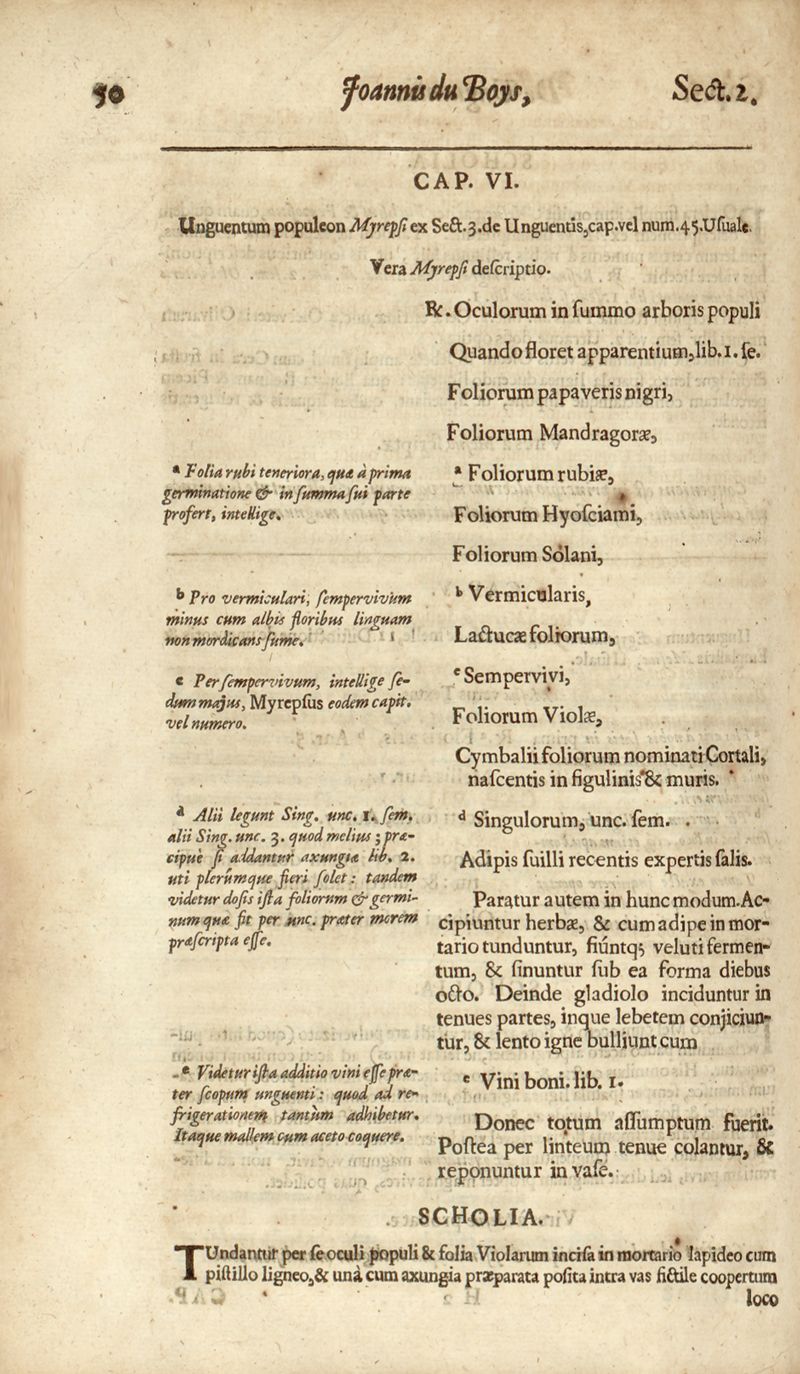 50 Joannis du Boys, Sect. 2.
CAP. VI.
Unguentum populeon Myrepsi ex Sect.3.de Unguentis,cap.vel num.45.Usuale.
Vera Myrepsi descriptio.
℞. Oculorum in summo arboris populi
Quando floret apparentium,lib.1.se.
Foliorum papaveris nigri,
Foliorum Mandragoræ,
ᵃ Folia rubi teneriora, quæ à prima
germinatione & in summa sui parte
profert, intellige.
ᵃ Foliorum rubiæ,
Foliorum Hyosciami,
Foliorum Solani,
ᵇ Pro vermiculari, sempervivum
minus cum albis floribus linguam
non mordicans sume.
ᵇ Vermicularis,
Lactucæ foliorum,
ᶜ Per sempervivum, intellige se-
dum majus, Myrepsus eodem capit.
vel numero.
ᶜ Sempervivi,
Foliorum Violæ,
Cymbalii foliorum nominati Cortali,
nascentis in figulinis & muris.
ᵈ Alii legunt Sing. unc. 1. sem.
alii Sing. unc. 3. quod melius ; præ-
cipuè si addantur axungiæ lib. 2.
uti plerúmque fieri solet : tandem
videtur dosis ista foliorum & germi-
num quæ fit per unc. præter morem
præscripta esse.
ᵈ Singulorum, unc. sem.
Adipis suilli recentis expertis salis.
Paratur autem in hunc modum. Ac-
cipiuntur herbæ, & cum adipe in mor-
tario tunduntur, fiúntq; veluti fermen-
tum, & sinuntur sub ea forma diebus
octo. Deinde gladiolo inciduntur in
tenues partes, inque lebetem conjiciun-
tur, & lento igne bulliunt cum
ᵉ Videtur ista additio vini esse præ-
ter scopum unguenti : quod ad re-
frigerationem tantùm adhibetur.
Itaque mallem cum aceto coquere.
ᵉ Vini boni. lib. 1.
Donec totum assumptum fuerit.
Postea per linteum tenue colantur, &
reponuntur in vase.
SCHOLIA.
TUndantur per se oculi populi & folia Violarum incisa in mortario lapideo cum
pistillo ligneo,& unà cum axungia præparata posita intra vas fictile coopertum
loco